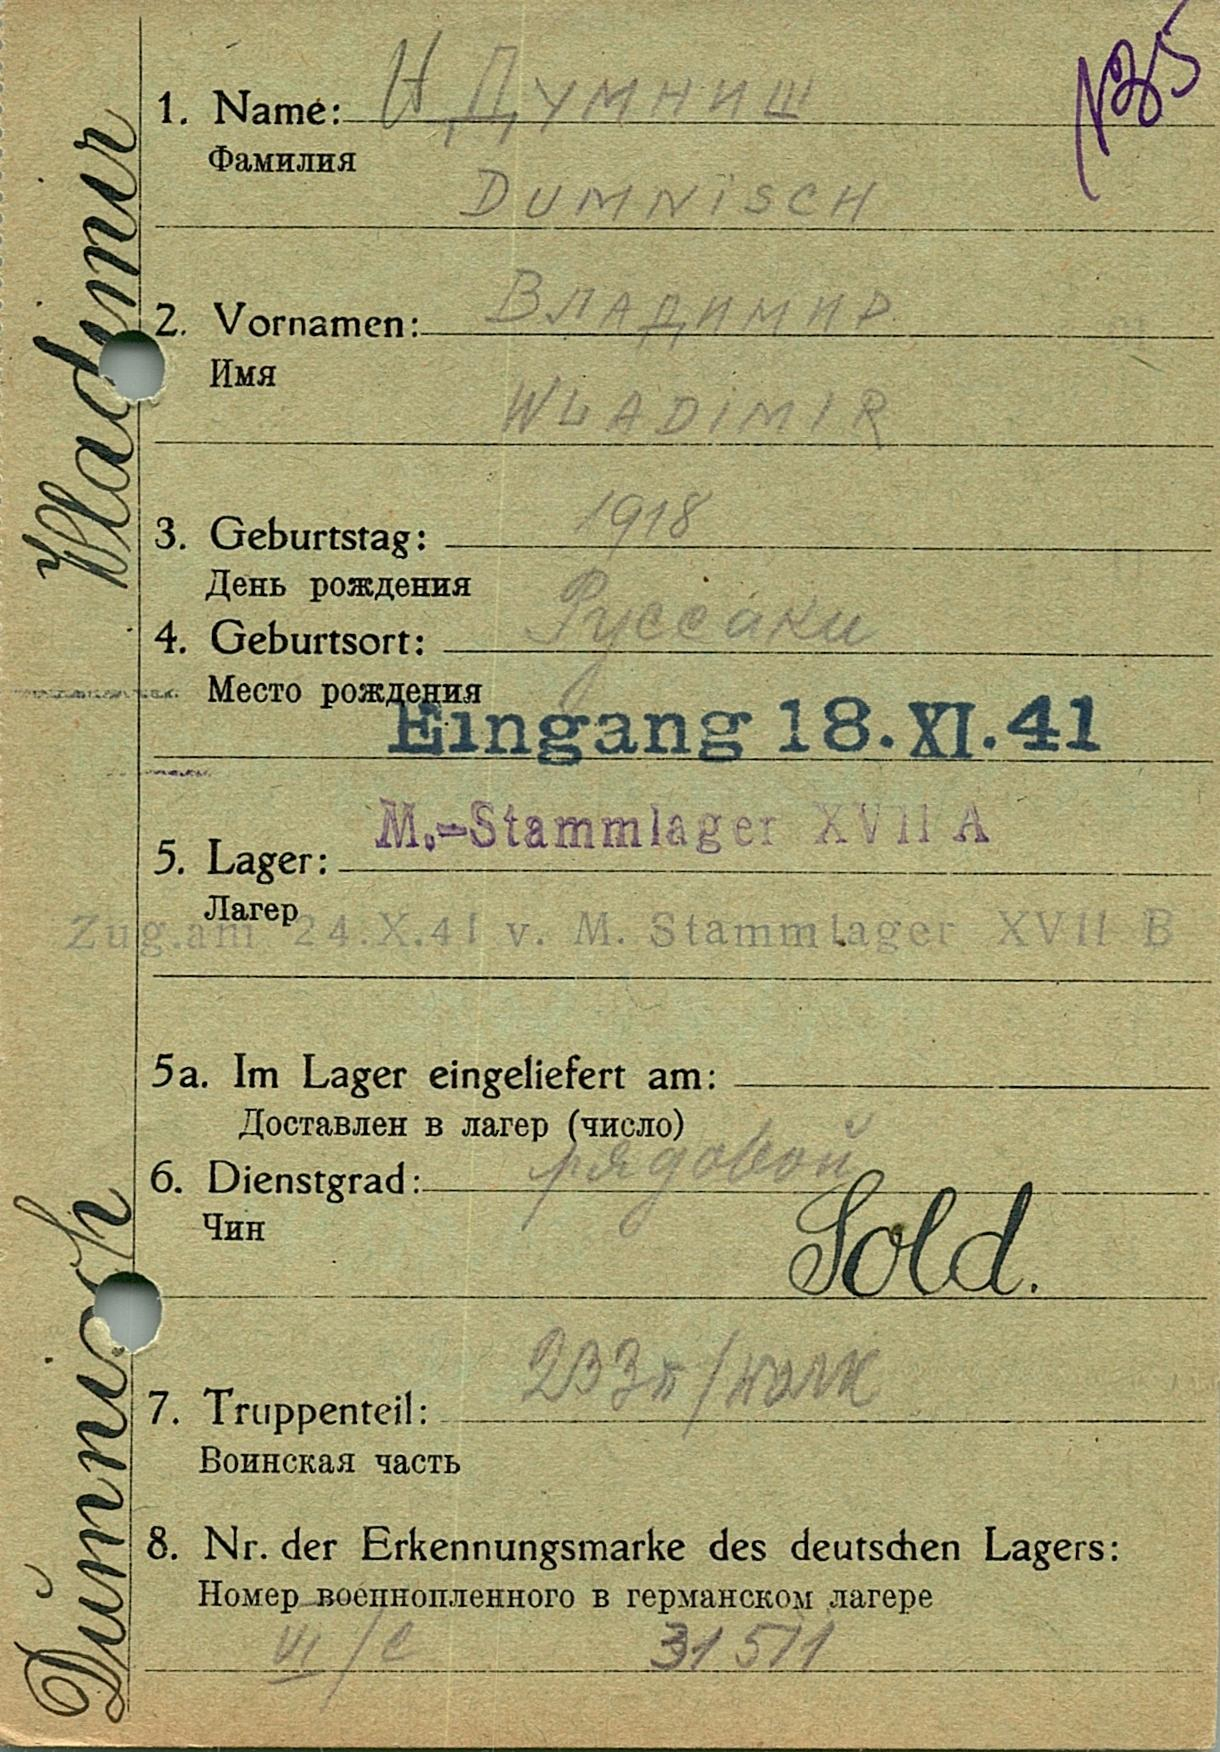 N35
1. Name: И ДУМНИШ
Фамилия
DUMNISCH
2. Vornamen: ВЛАДИМИР
Имя
WLADIMIR
3. Geburtstag: 1918
День рождения
4. Geburtsort: Руссаки
Место рождения
Eingang 18.XI.41
M.-Stammlager XVII A
5. Lager:
Лагер
Zug.am 24.X.41 v. M. Stammlager XVII B
5a. Im Lager eingeliefert am:
Доставлен в лагер (число)
6. Dienstgrad: рядовой
Чин
Sold.
7. Truppenteil: 233 п/полк
Воинская часть
8. Nr. der Erkennungsmarke des deutschen Lagers:
Номер военнопленного в германском лагере
VI/C 31511
Dumnisch Wladimir